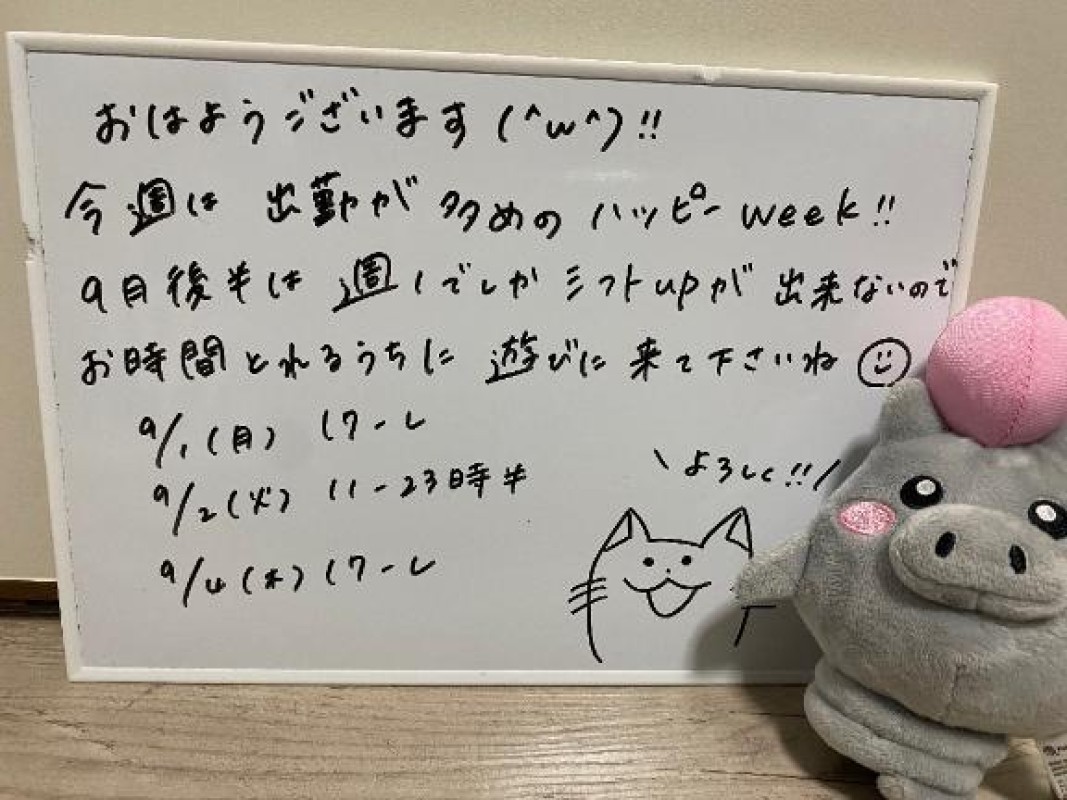 おはようございます(^w^)!!
今週は 出勤が 多めの ハッピーweek!!
9月後半は 週1でしか シフトupが 出来ないので
お時間とれるうちに 遊びに 来て下さいね
9/1(月) 17-L
9/2(火) 11-23時半
9/4(木) 17-L
\よろしく!!/